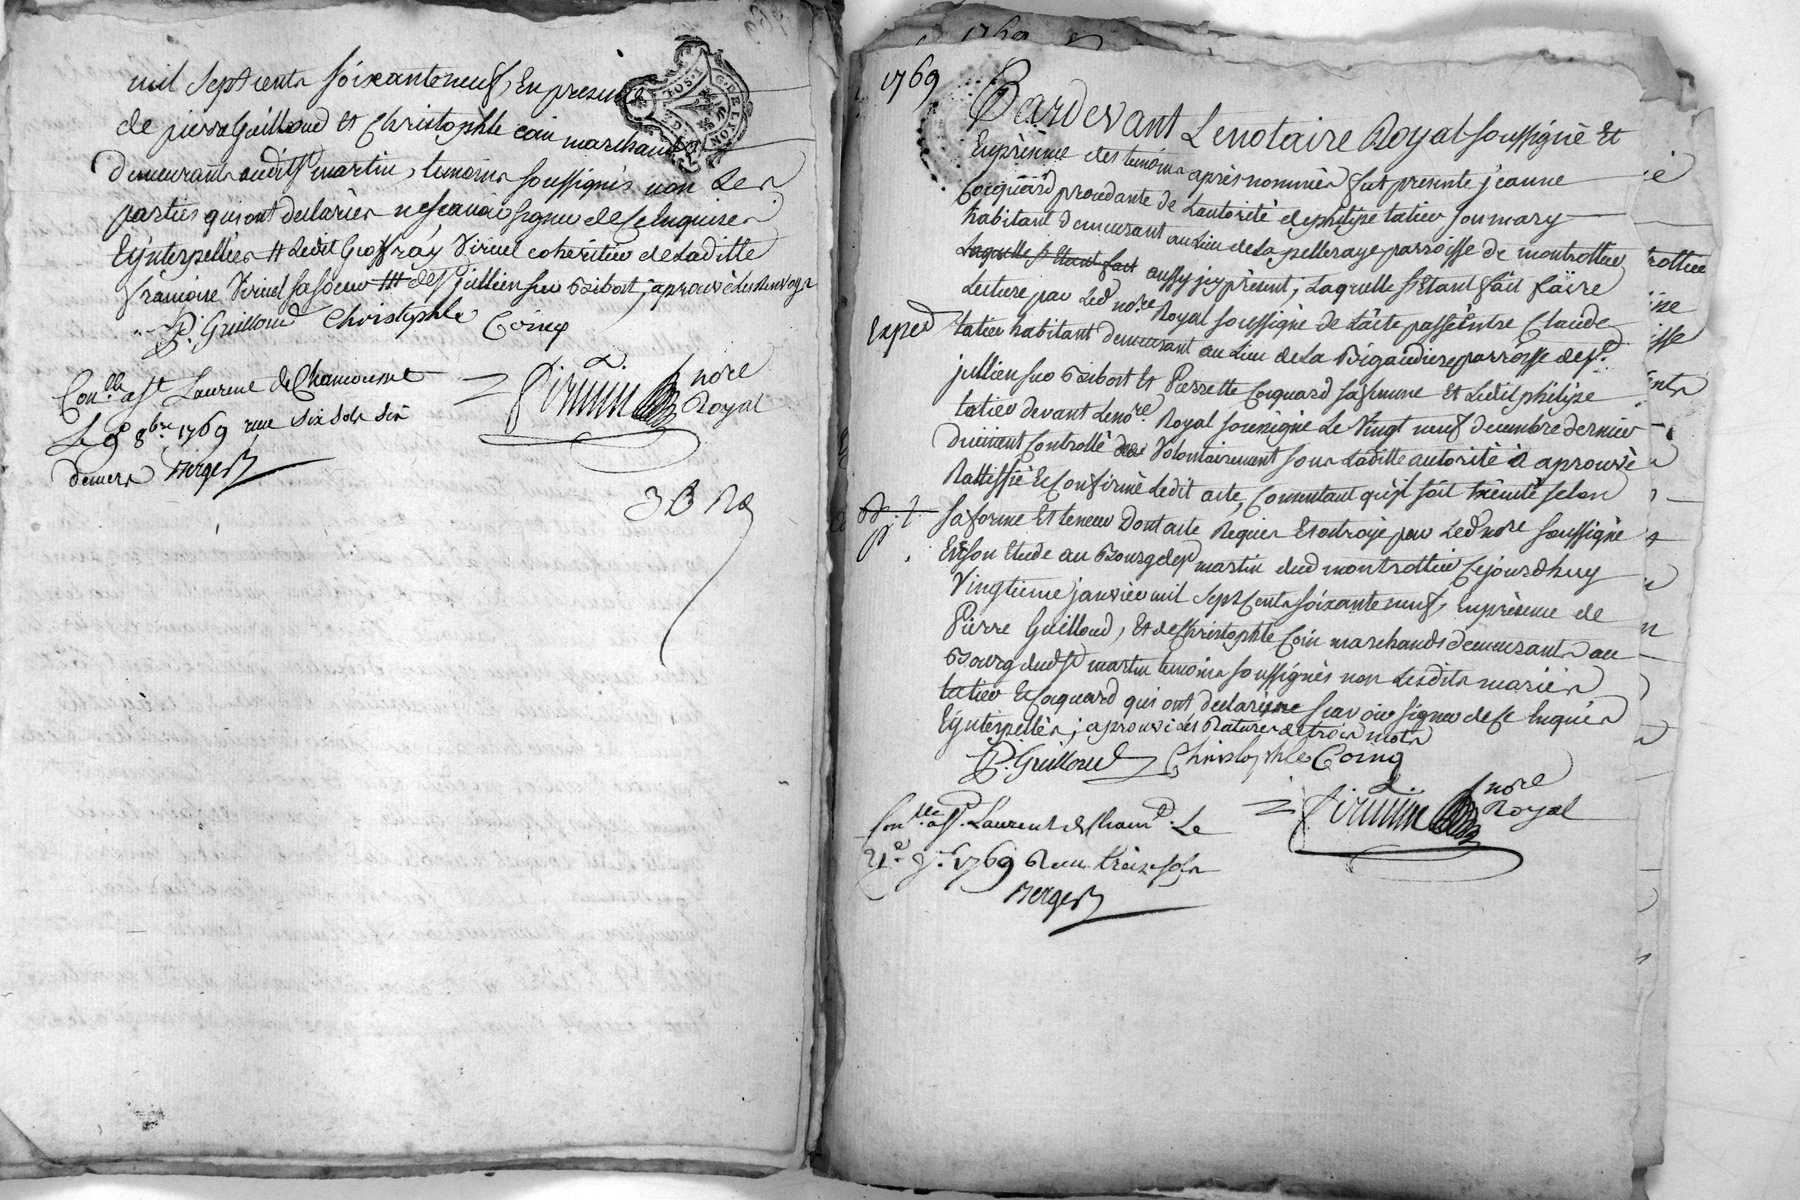 mil sept cents soixante neuf, En presence
de pierre Guilloud et Christophle coin marchands
demeurants audit st martin, temoins soussignés non Les
parties qui ont declarées ne scavoir signer de ce Enquises
Et ynterpellées # Ledit Geoffray Viricel coheritier de Laditte
françoise Viricel sa soeur ## de st jullien sur Bibost, aprouvé Les renvoys
P. Guilloud Christophle Coing
Conllé a st Laurent de Chamousset
Le 9e 8bre 1769 reçu six sols six
deniers Berger
nore
Royal
1769
Pardevant Le notaire Royal soussigné Et
En presence des temoins après nommés fut presente jeanne
Coquard procedante de L'autorité de philipe tatier son mary
habitant demeurant au Lieu de La pelleraye parroisse de montrottier
Laquelle s'Etant fait aussy jcy présent, Laquelle s'Etant fait faire
Lecture par Led. nore Royal soussigné de L'acte passé Entre Claude
Exped
tatier habitant demeurant au Lieu de La Bigaudiere parroisse de st.
jullien sur Bibost Et Pierrette Coquard sa femme Et Ledit philipe
tatier devant Le nore. Royal soussigné Le Vingt neuf decembre dernier
duëment Controllé Volontairement sous Laditte autorité à aprouvé
Rattiffié Et Confirmé Ledit acte, Consentant qu'jl soit Exécuté selon
sa forme Et teneur Dont acte Requis Et octroyé par Led nore soussigné
En son Etude au Bourg de st martin dud montrottier Cejourdhuy
Vingtieme janvier mil sept Cents soixante neuf, En présence de
Pierre Guilloud, Et de Christophle Coin marchands demeurants au
Bourg dud st martin temoins soussignés non Lesdits mariés
tatier Et Coquard qui ont declarés ne scavoir signer de ce Enquis
Et ynterpellés; aprouvé les Ratures de trois mots
P. Guilloud Christophle Coing
Conllé a st. Laurent de Cham. Le
21e. jr. 1769 Reçu treize sols
Berger
nore
Royal